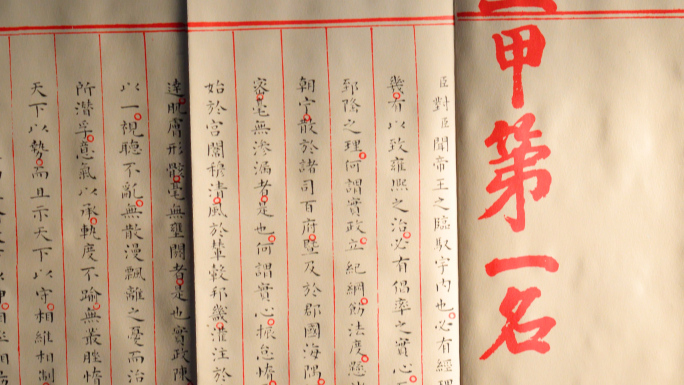 甲第一名
臣對臣聞帝王之臨馭宇內也必有經理
幾有以致雍熙之治必有倡率之實心
郅隆之理何謂實政立紀綱飭法度懸
朝宁散於諸司百府暨及於郡國海隅
密毫無滲漏者是也何謂實心振怠惰
始於宮闈穆清風於輦轂邦畿灌注於
達肌膚形骸毫無壅閼者是也實政陳
以一視聽不亂無散漫飄離之憂而治
所潛孚意氣以承軌度不踰無叢脞惰
天下以勢而且示天下以守相維相制